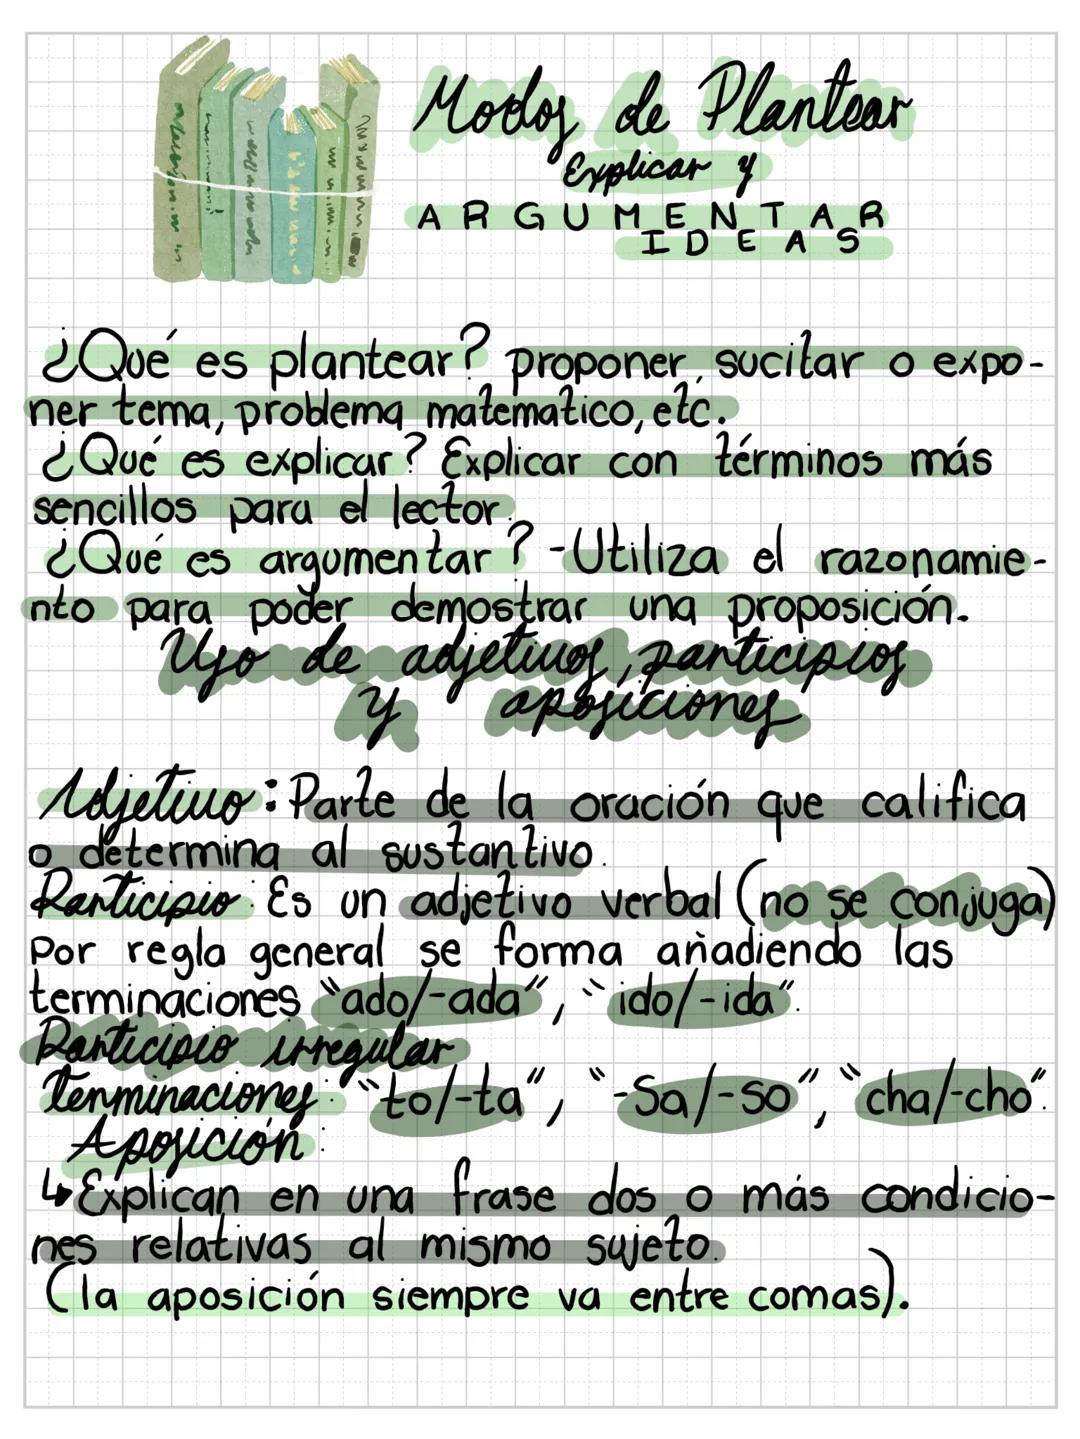 Modos de Plantear
Explicar y
ARGUMENTAR
IDEAS
¿Qué es plantear? proponer, sucitar o expo-
ner tema, problema matematico, etc.
¿Qué es explicar? Explicar con términos más
sencillos para el lector.
¿Qué es argumentar? -Utiliza el razonamie-
nto para poder demostrar una proposición.
Uso de adjetivos, participios
y aposiciones
Adjetivo: Parte de la oración que califica
o determina al sustantivo.
Participio: Es un adjetivo verbal (no se conjuga)
Por regla general se forma añadiendo las
terminaciones "ado/-ada", "ido/-ida".
Participio irregular
Terminaciones: "to/-ta", "-Sa/-so", "cha/-cho".
Aposición:
↳Explican en una frase dos o más condicio-
nes relativas al mismo sujeto.
(la aposición siempre va entre comas).